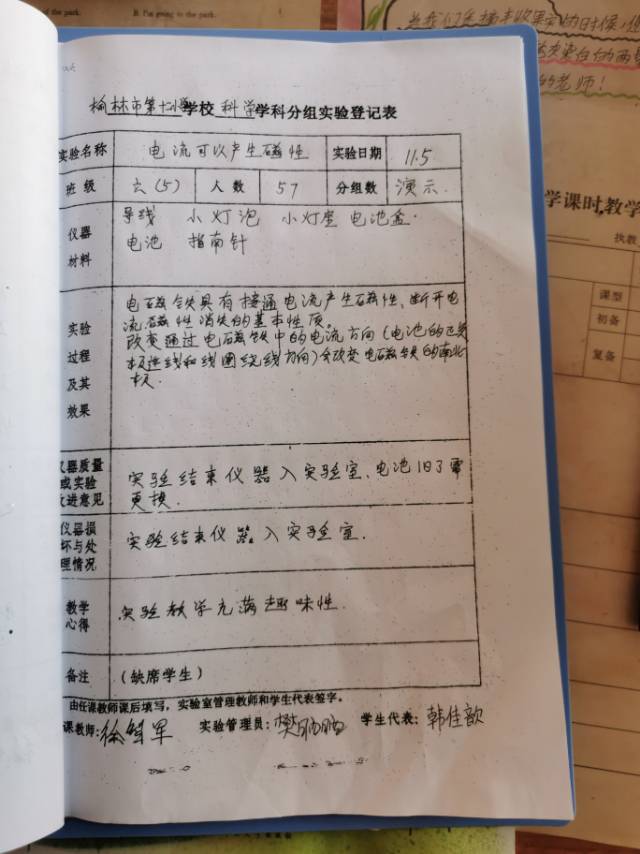 d the park.
B. I'm going to the park.
的老师!
榆林市第十小学校科学学科分组实验登记表
实验名称 电流可以产生磁性 实验日期 11.5
班 级 六(5) 人 数 57 分组数 演示.
仪器
材料
导线 小灯泡 小灯座 电池盒.
电池 指南针
实验
过程
及其
效果
电磁铁具有接通电流产生磁性、断开电
流磁性消失的基本性质。
改变通过电磁铁中的电流方向(电池的正负
极连线和线圈绕线方向)会改变电磁铁的南北
极.
仪器质量
或实验
改进意见
实验结束仪器入实验室、电池旧了需
更换.
仪器损
坏与处
理情况
实验结束仪器入实验室.
教学
心得
实验教学充满趣味性.
备注 (缺席学生)
由任课教师课后填写,实验室管理教师和学生代表签字。
课教师: 实验管理员: 学生代表: 韩佳歆
学课时教学
执教
课型
初备
复备